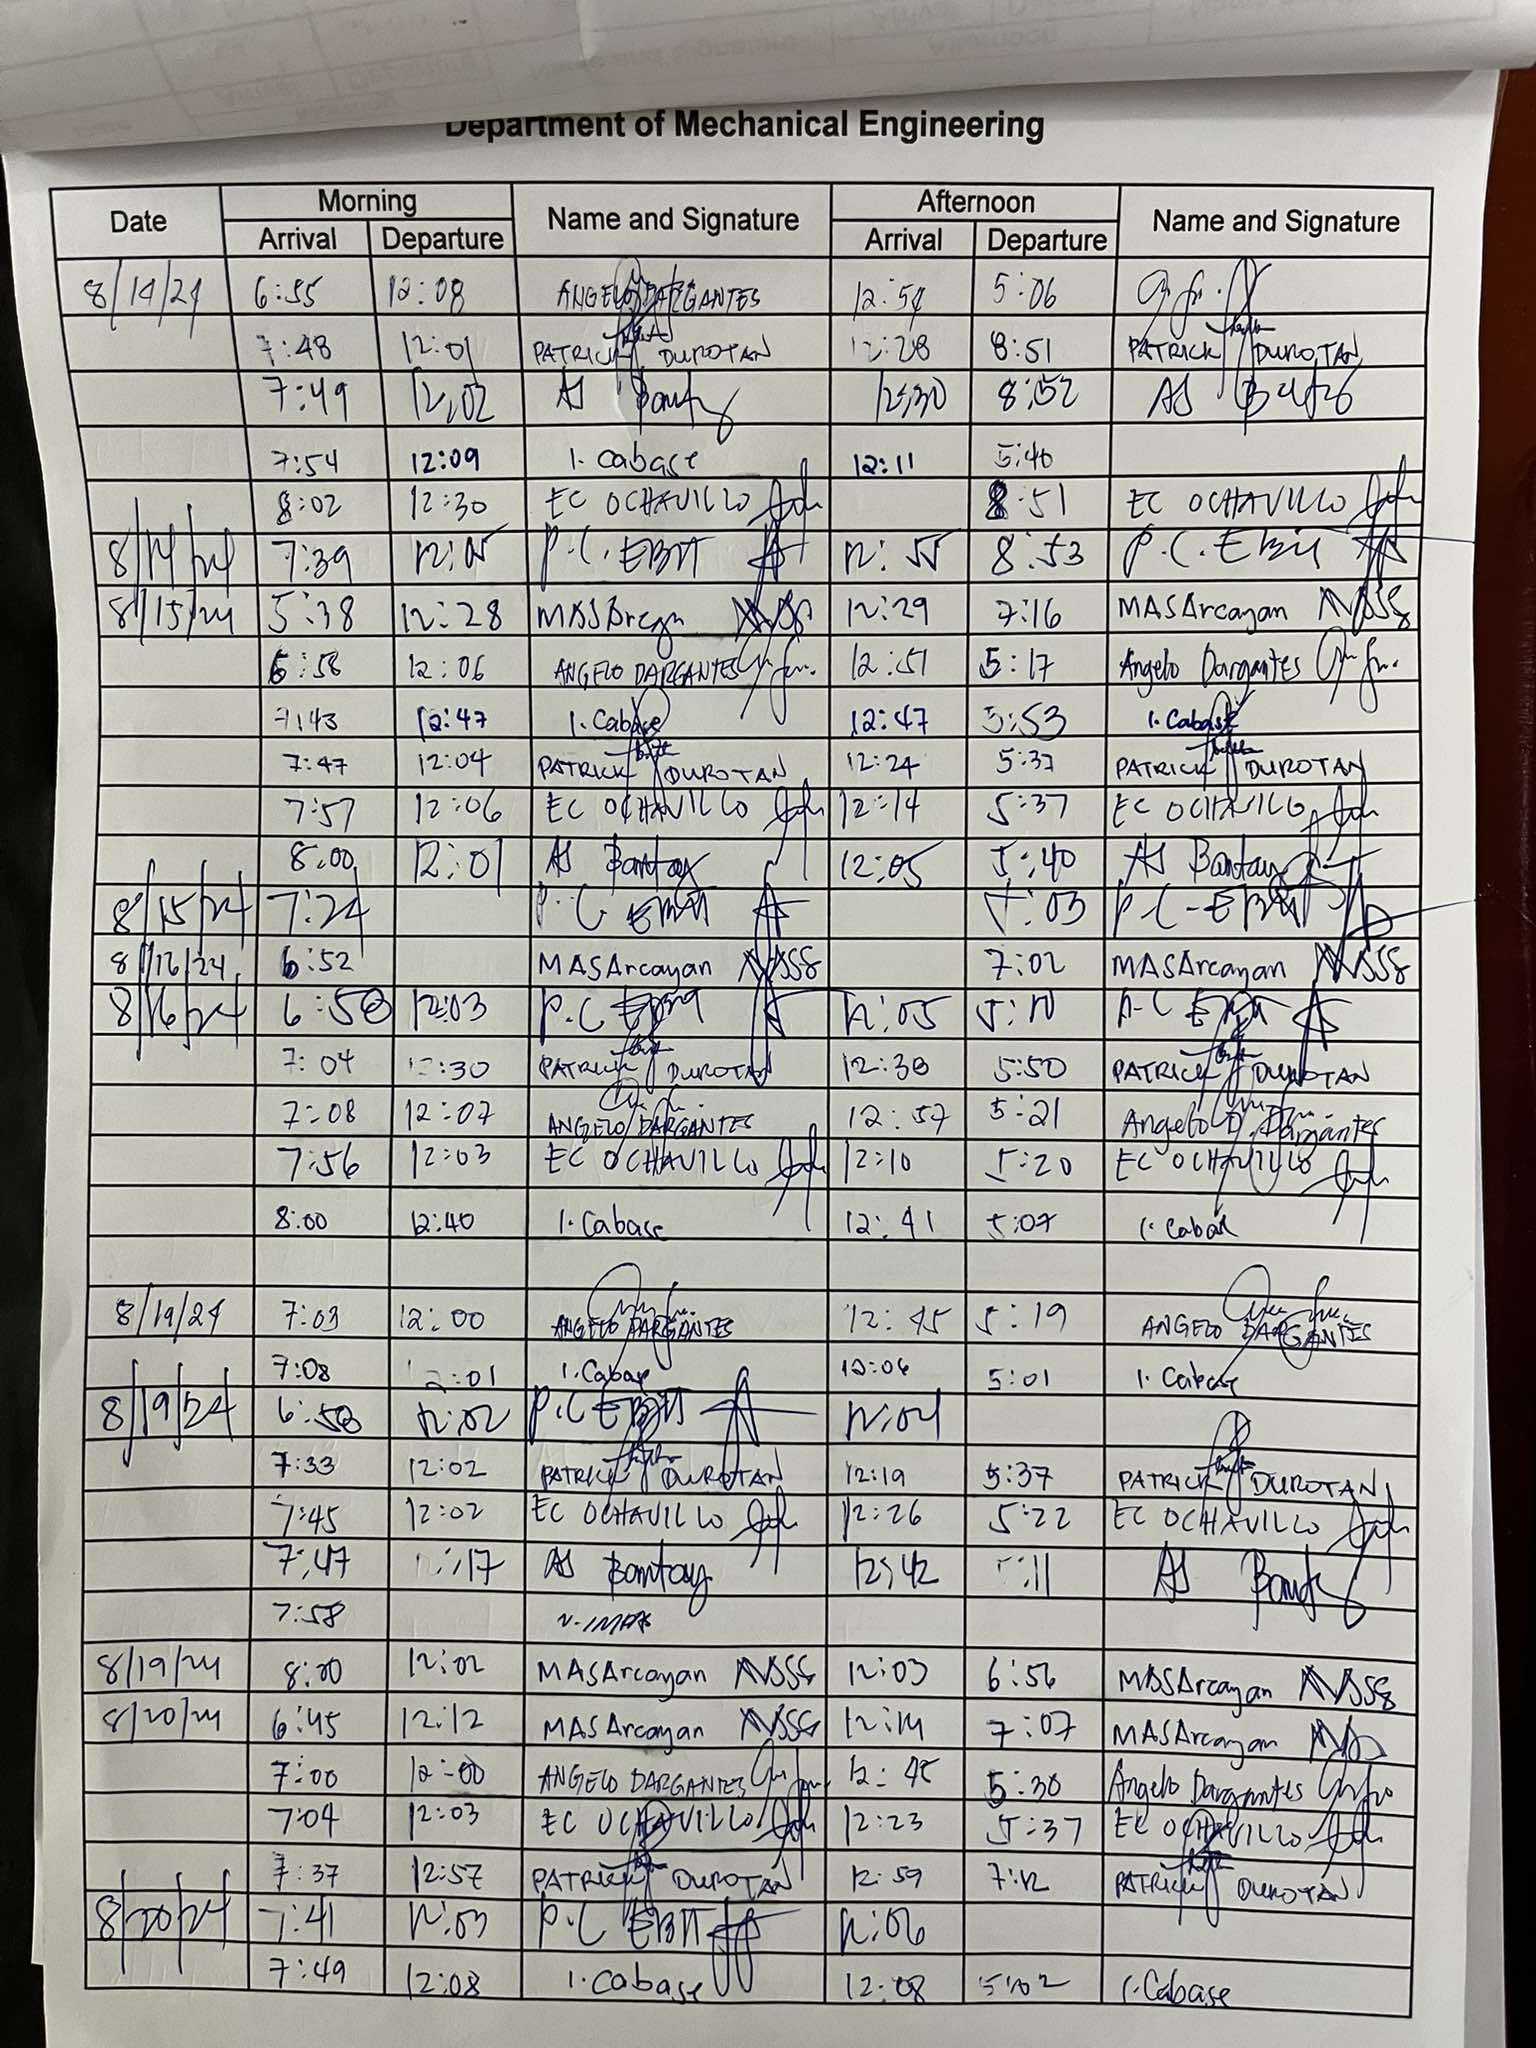 Department of Mechanical Engineering
Date Morning Name and Signature Afternoon Name and Signature
Arrival Departure Arrival Departure
8/14/24 6:55 12:08 ANGELO DARGANTES 12:54 5:06
7:48 12:01 PATRICK DUROTAN 12:28 8:51 PATRICK DUROTAN
7:49 12:02 AS 12:30 8:52 AS
7:54 12:09 I. Cabase 12:11 5:40
8:02 12:30 EC OCHAVILLO 8:51 EC OCHAVILLO
8/14/24 7:39 12:05 P.C. EBIT 12:55 8:53 P.C. EBIT
8/15/24 5:38 12:28 12:29 7:16 MASArcayan
6:58 12:06 ANGELO DARGANTES 12:51 5:17 Angelo Dargantes
7:43 12:47 I. Cabase 12:47 5:53 I. Cabase
7:47 12:04 PATRICK DUROTAN 12:24 5:37 PATRICK DUROTAN
7:57 12:06 EC OCHAVILLO 12:14 5:37 EC OCHAVILLO
8:00 12:01 AS Bantay 12:05 5:40 AS Bantay
8/15/24 7:24 P.C EBIT 5:03 P.C-EBIT
8/16/24 6:52 MASArcayan 7:02 MASArcayan
8/16/24 6:50 12:03 P.C EBIT 12:05 P.C EBIT
7:04 12:30 PATRICK DUROTAN 12:30 5:50 PATRICK DUROTAN
7:08 12:07 ANGELO DARGANTES 12:57 5:21 Angelo D. Dargantes
7:56 12:03 EC OCHAVILLO 12:10 5:20 EC OCHAVILLO
8:00 12:40 I. Cabase 12:41 5:07 I. Cabase
8/19/24 7:03 12:00 ANGELO DARGANTES 12:45 5:19 ANGELO DARGANTES
7:08 12:01 I. Cabase 12:06 5:01 I. Cabase
8/19/24 6:50 12:02 P.C EBIT 12:04
7:33 12:02 PATRICK DUROTAN 12:19 5:37 PATRICK DUROTAN
7:45 12:02 EC OCHAVILLO 12:26 5:22 EC OCHAVILLO
7:47 12:17 AS Bantay 12:42 5:11 AS
7:58
8/19/24 8:00 12:02 MASArcayan 12:03 6:56 MASArcayan
8/20/24 6:45 12:12 MASArcayan 12:14 7:07 MASArcayan
7:00 12:00 ANGELO DARGANTES 12:45 5:30 Angelo Dargantes
7:04 12:03 EC OCHAVILLO 12:23 5:37 EC OCHAVILLO
7:37 12:57 PATRICK DUROTAN 12:59 7:12 PATRICK DUROTAN
8/20/24 7:41 12:03 P.C EBIT 12:06
7:49 12:08 I. Cabase 12:08 5:02 I. Cabase